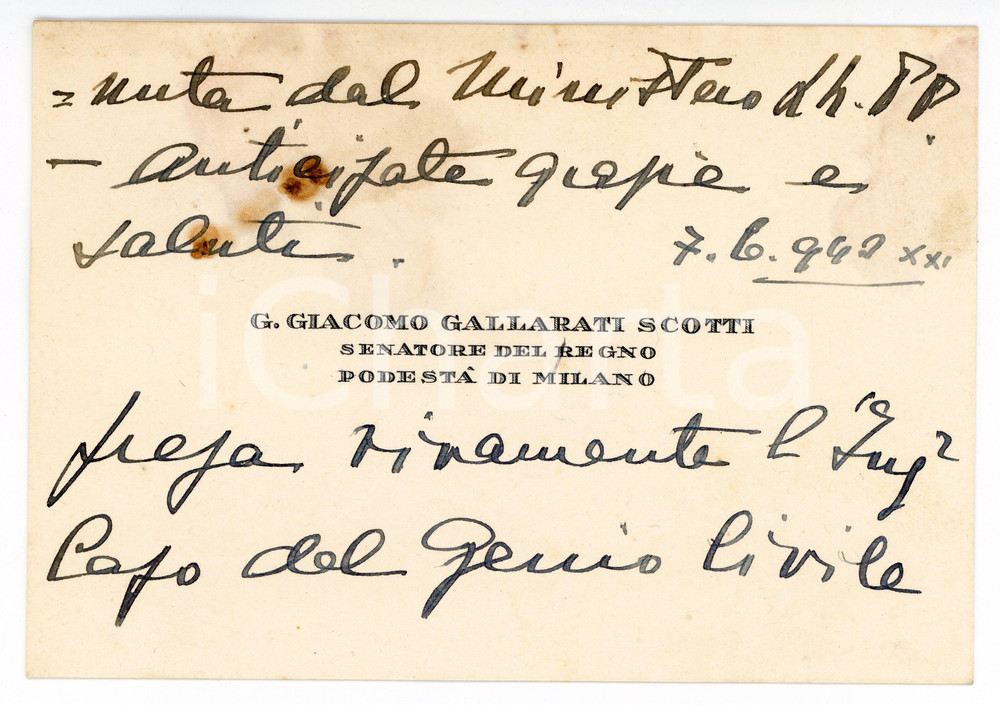 = nuta dal Ministero LL. PP.
- Anticipate grazie e
saluti.
7. 6. 942 XXI
iCharta
G. GIACOMO GALLARATI SCOTTI
SENATORE DEL REGNO
PODESTÀ DI MILANO
prega vivamente l'Ingr
Capo del Genio Civile